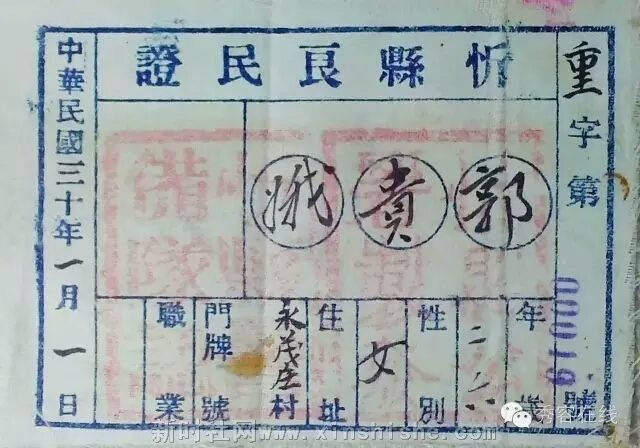 忻縣良民證
重字第00019號
郭貴娥
年歲
性別 女
住址 永茂庄村
門牌號
職業
中華民國三十年一月一日
秀容在线
新时社网www.xinshishe.com